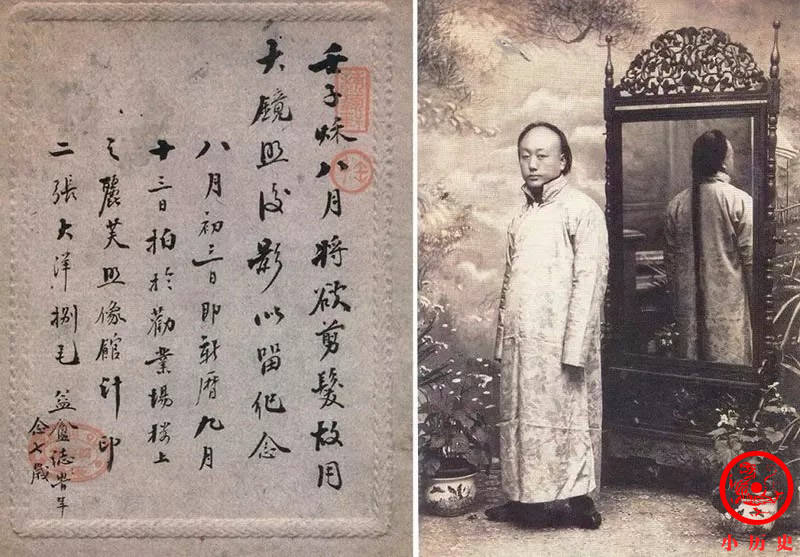 壬子秌八月將欲剪髮故用
大鏡照後影以留紀念
八月初三日即新曆九月
十三日拍於勸業場樓上
之麗芙照像館計印
二張大洋捌毛
益盦誌 時年
念七歲
小历史